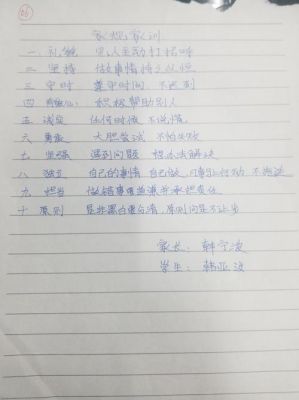 家规家训
一、礼貌 见人主动打招呼
二 坚持 做事情持之以恒
三 守时 遵守时间 不迟到
四 有爱心 积极帮助别人
五 诚实 任何时候 不说谎
六 勇敢 大胆尝试 不怕失败
七 坚强 遇到问题 想办法解决
八 独立 自己的事情 自己做
九 担当 做错事 承担责任
十 原则 是非黑白要分清,原则问题不让步
家长:韩宁波
学生:韩亚汶